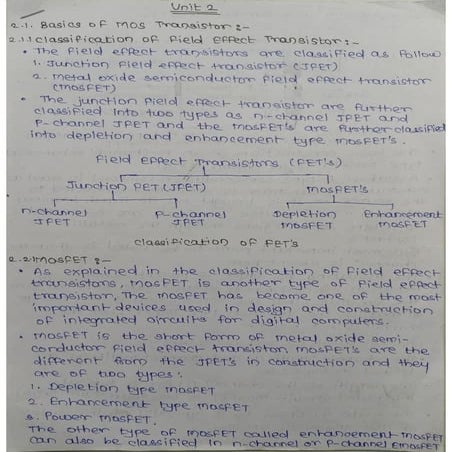 Unit 2
2.1. Basics of MOS Transistor :-
2.1.1 classification of Field Effect Transistor :-
• The field effect transistors are classified as follow
1. Junction Field effect transistor (JFET)
2. metal oxide semiconductor field effect transistor
(MOSFET)
• The junction field effect transistor are further
classified into two types as n-channel JFET and
P-channel JFET and the MOSFET's are further classified
into depletion and enhancement type MOSFET's.
Field Effect Transistors (FET's)
Junction FET (JFET) MOSFET's
n-channel JFET P-channel JFET Depletion MOSFET Enhancement MOSFET
classification of FET's
2.2. MOSFET :-
• As explained in the classification of Field effect
transistors, MOSFET is another type of Field effect
transistor, The MOSFET has become one of the most
important devices used in design and construction
of integrated circuits for digital computers.
• MOSFET is the short form of metal oxide semi-
conductor field effect transistor MOSFET's are the
different from the JFET's in construction and they
are of two types :
1. Depletion type MOSFET
2. Enhancement type MOSFET
3. Power MOSFET.
The other type of MOSFET called enhancement MOSFET
can also be classified in n-channel or P-channel EMOSFET